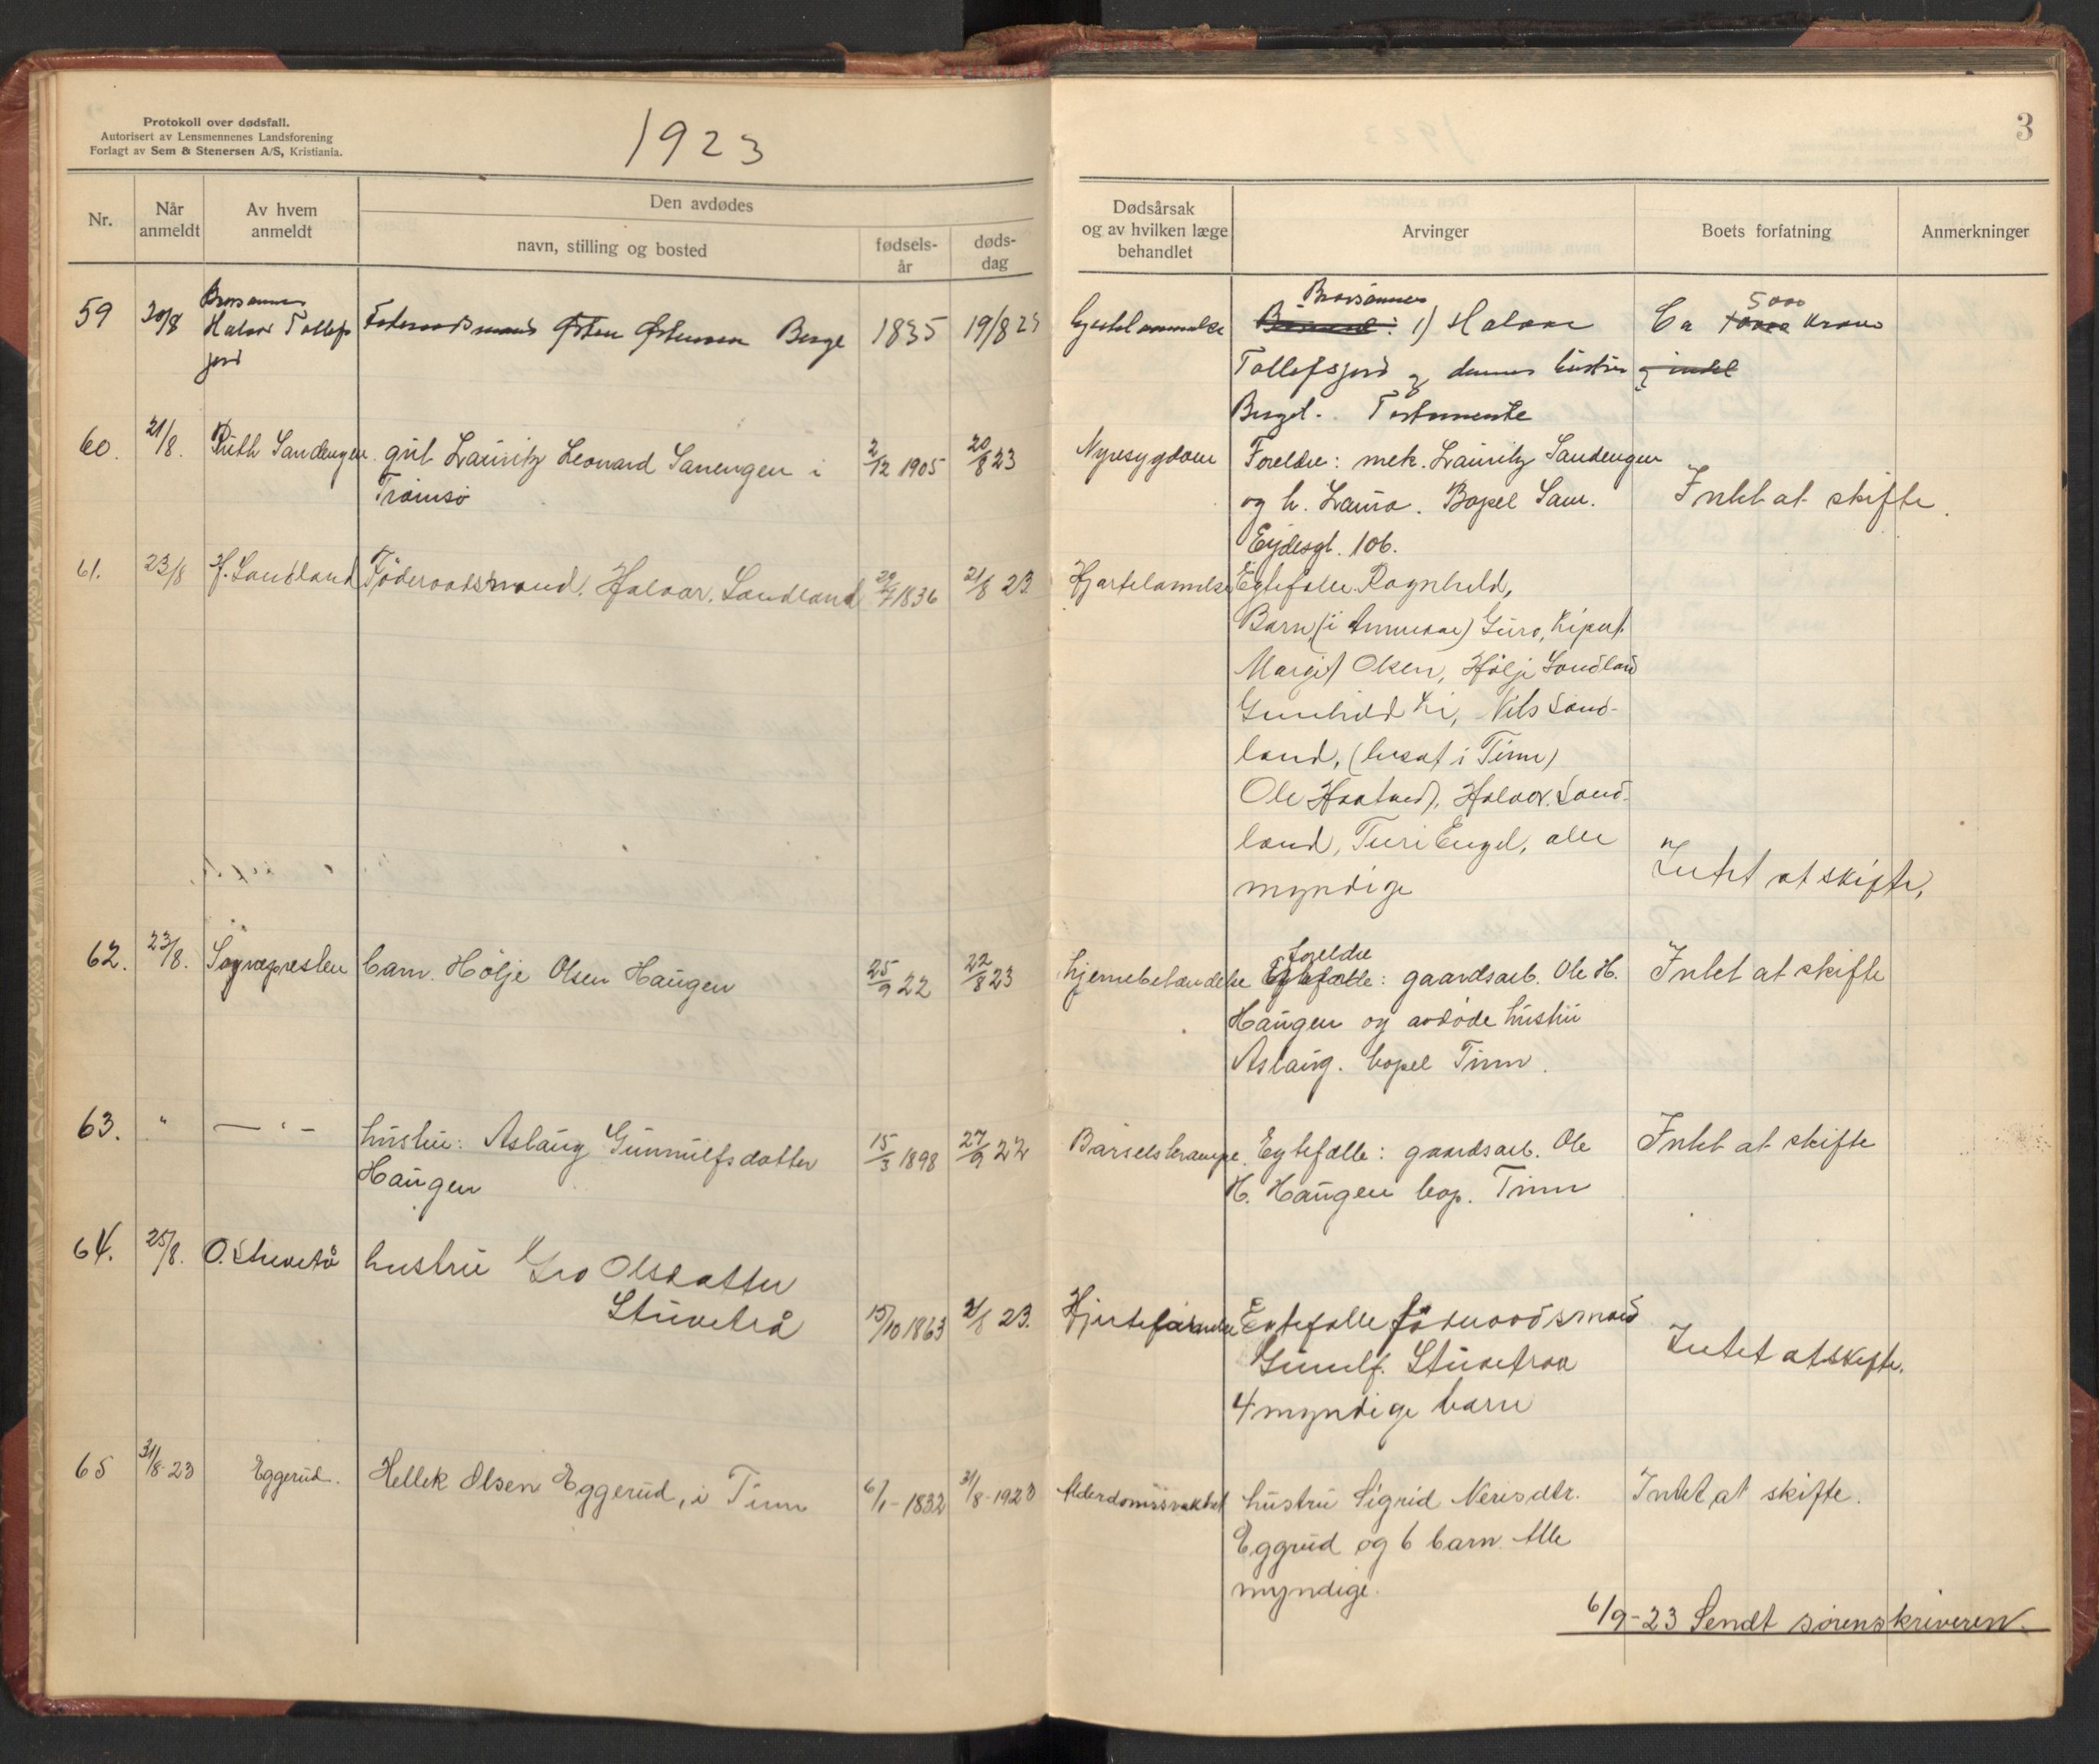 Protokoll over dødsfall.
Autorisert av Lensmennenes Landsforening
Forlagt av Sem & Stenersen A/S, Kristiania.
1923
3
Nr.
Når anmeldt
Av hvem anmeldt
Den avdødes
navn, stilling og bosted
fødsels-år
døds-dag
Dødsårsak og av hvilken læge behandlet
Arvinger
Boets forfatning
Anmerkninger
59 20/8 Halvor Tollefsjord Østen Østensen Berge 1835 19/8 23
Brorsønnen
1) Halvor
Ca 5000 kroner
Tollefsjord og dennes hustru
Testamente
60. 21/8. Ruth Sandengen gut Lauritz Leonard Sanengen i 2/12 1905 20/8 23 Nyresygdom Foreldre: mek. Lauritz Sandengen
Tromsø
og h. Laura. Bopel Sam.
Intet at skifte.
Eydesgt. 106.
61. 23/8 H. Sandland Föderaadsmand. Halvor. Sandland 29/7 1836 21/8 23 Hjertelammelse Egtefalle Ragnhild,
Barn (i Amerika) Guro,
Margit Olsen, Hølje Sandland
Gunhild Li, Nils Sand-
land, (bosat i Tinn)
Ole Haatvedt, Halvor Sand-
land, Turi Engel, alle
myndige
Intet at skifte,
62. 23/8. Sogneprestn barn. Hölje Olsen Haugen 25/9 22 22/8 23 hjernebetændelse Foreldre Egtefælle: gaardsarb. Ole H. Intet at skifte
Haugen og avdøde hustru
Aslaug. bopel Tinn.
63. " — " — hustru: Aslaug Gunnulfsdatter 15/3 1898 27/9 22 Barselskrampe. Egtefælle: gaardsarb. Ole Intet at skifte
Haugen
H. Haugen bop. Tinn
64. 25/8. O. Stuvetrå hustru Gro Olsdatter
Stuvetrå 15/10 1863 21/8 23. Egtefalle föderaadsmand
Gunulf. Stuvetraa
Intet at skifte.
4 myndige barn
65 31/8-23 Eggerud. Hellek Olsen Eggerud, i Tinn 6/1-1832 31/8-1923 Alderdomssvakhet hustru Sigrid Nerisdtr. Intet at skifte.
Eggrud og 6 barn Alle
myndige.
6/9-23 Sendt sorenskriveren.